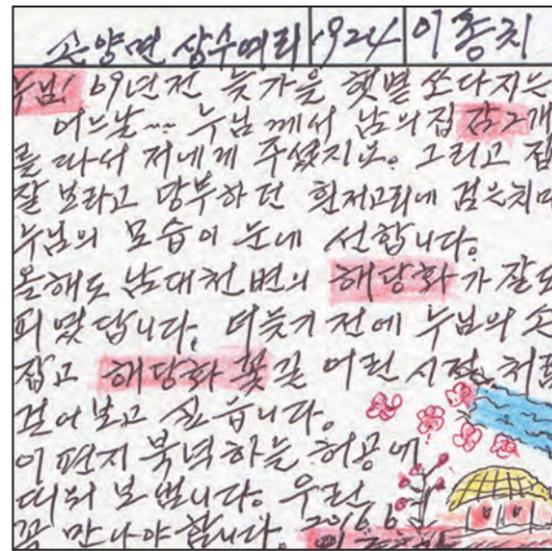 손양면 상수여리 1924 이종지
누님! 69년전 늦가을 햇볕 쏘다지는
어느날~~ 누님께서 남의집 감2개
를 따서 저네게 주셨지요. 그리고 집
잘 보라고 당부하던 흰저고리에 검은치마
누님의 모습이 눈에 선합니다.
올해도 남대천변의 해당화가 잘도
피였답니다. 더늦기전에 누님의 손
잡고 해당화 꽃길 어린 시절 처럼
걸어보고 싶읍니다.
이편지 북녁하늘 허공에
띠워 보냅니다. 우린
꼭 만나야 합니다. 2016.6